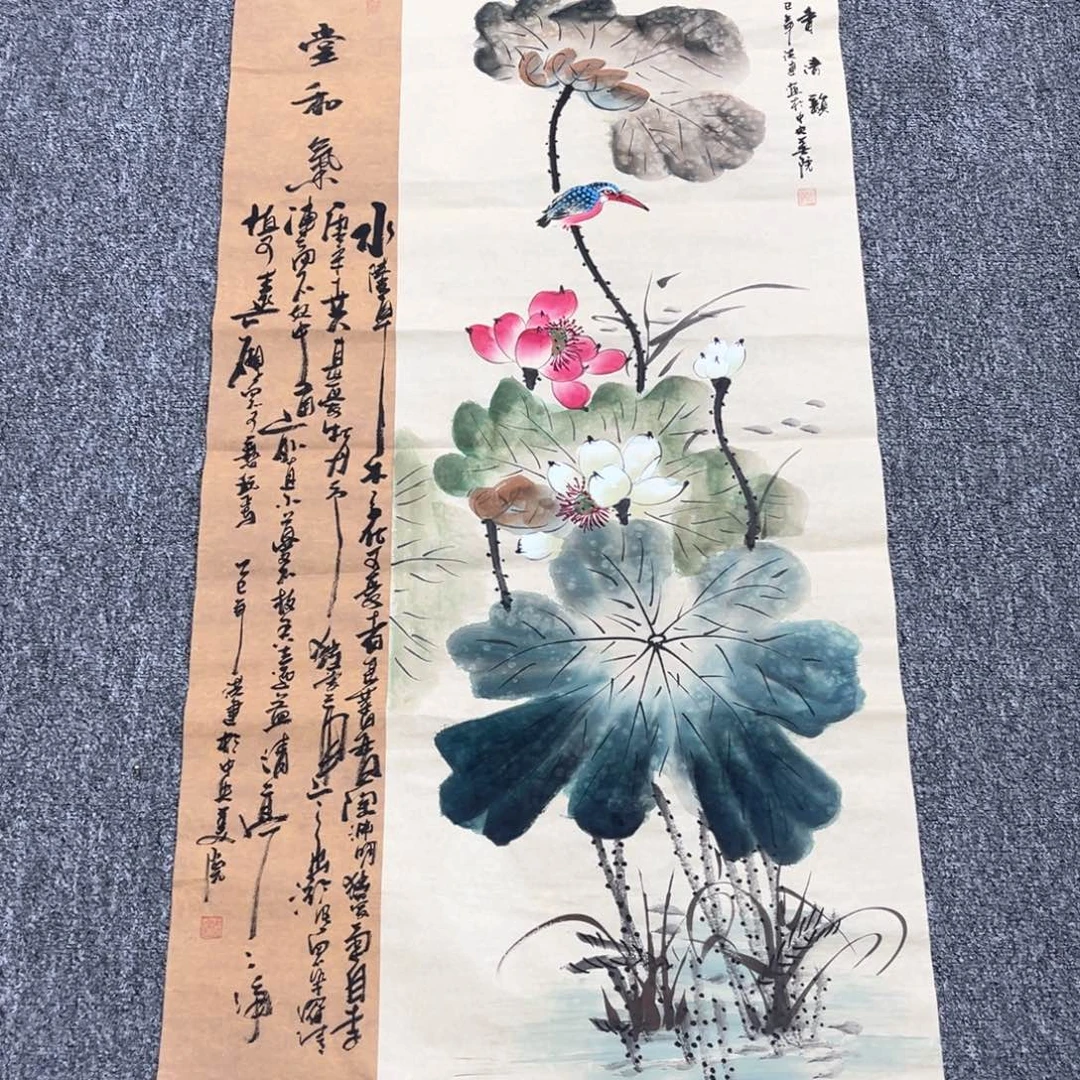 香清韻
巳年洪建於中央美院
堂和氣
水陸草木之花可愛者甚蕃晉陶渊明獨愛菊自李
唐來世人甚愛牡丹予獨愛蓮之出淤泥而不染濯清
漣而不妖中通外直不蔓不枝香遠益清亭亭淨
植可遠
乙巳年洪建於中央美院